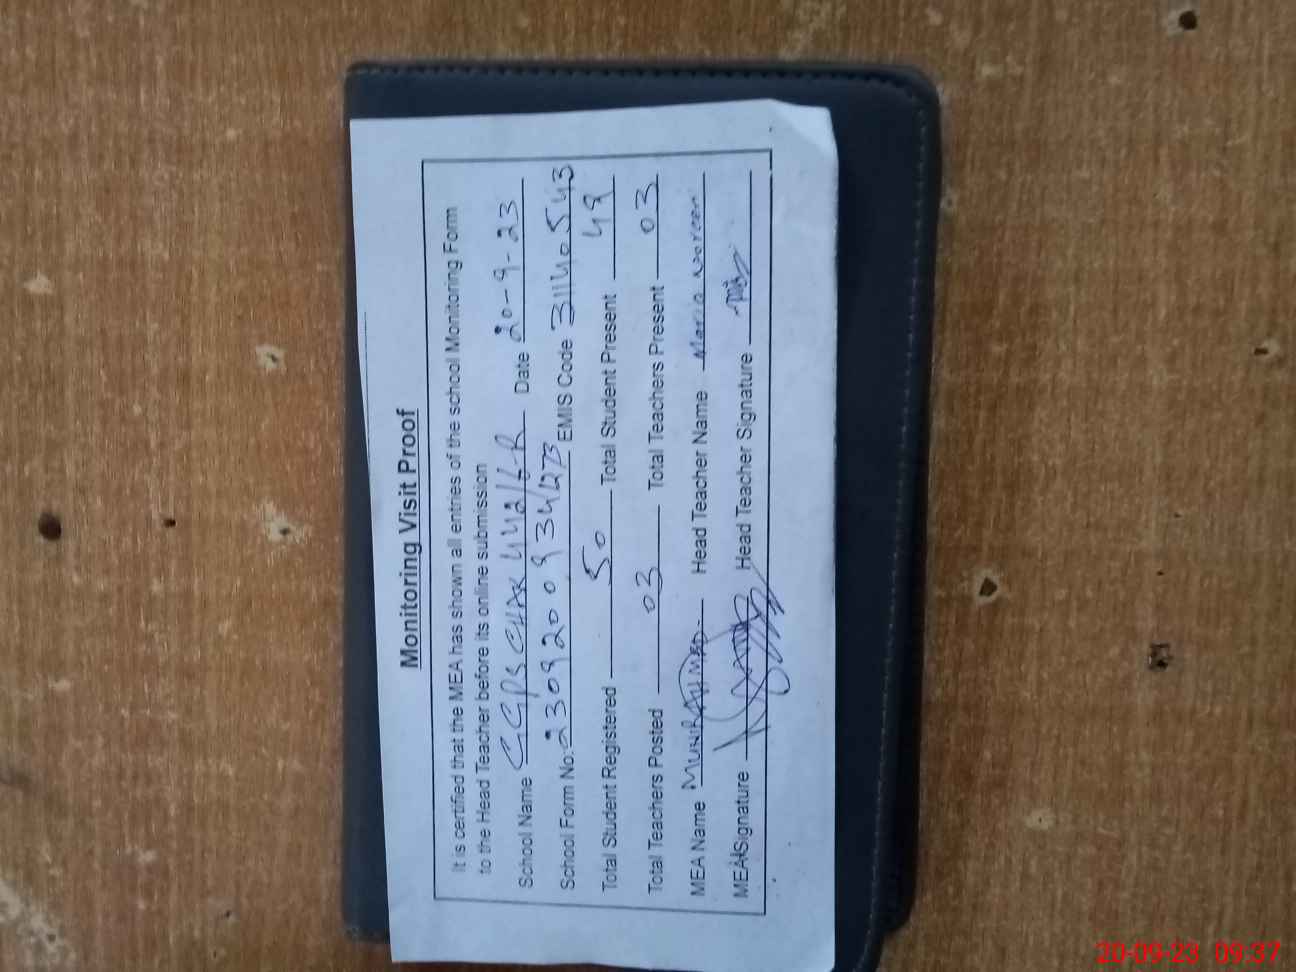 Monitoring Visit Proof
It is certified that the MEA has shown all entries of the school Monitoring Form
to the Head Teacher before its online submission
School Name GGPS CHAK 442/6-R Date 20-9-23
School Form No: EMIS Code 31140543
Total Student Registered 50 Total Student Present 49
Total Teachers Posted 03 Total Teachers Present 03
MEA Name MUNIR AHMAD- Head Teacher Name Maria Noreen
MEA Signature Head Teacher Signature
20-09-23 09:37